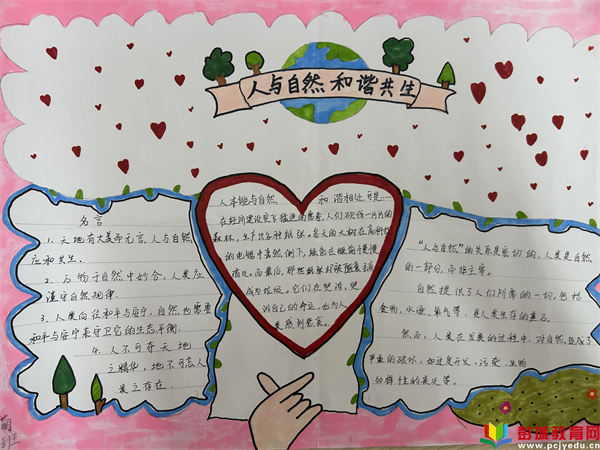 人与自然和谐共生
名言
1. 天地有大美而无言，人与自然
应和共生．
2. 万物于自然中妙合，人类应
遵守自然规律．
3. 人类向往和平与安宁，自然也需要
和平与安宁来守卫它的生态平衡．
4. 人不可夺天地
之精华，地不可忘人
类之存在．
人本能与自然 和谐相处，可是……
在经济建设突飞猛进的
人们砍伐一片片的
森林，生产
的电锯中轰然倒下，绿色在眼前慢慢
成为垃圾．它们在哭泣，哭
泣自己的命运，也为人
类感到悲哀．
“人与自然”的关系是密切的，人类是自然
的一部分，不独立.
自然提供了人们所需的一切，包括
食物，水源，氧气等，是人类生存的 .
然而，人类在发展的过程中，对自然造成了
严重的破坏，如过度开发、污染、生物
多样性的丧失等．
萌
班
彭城教育网
www.pcjyedu.cn